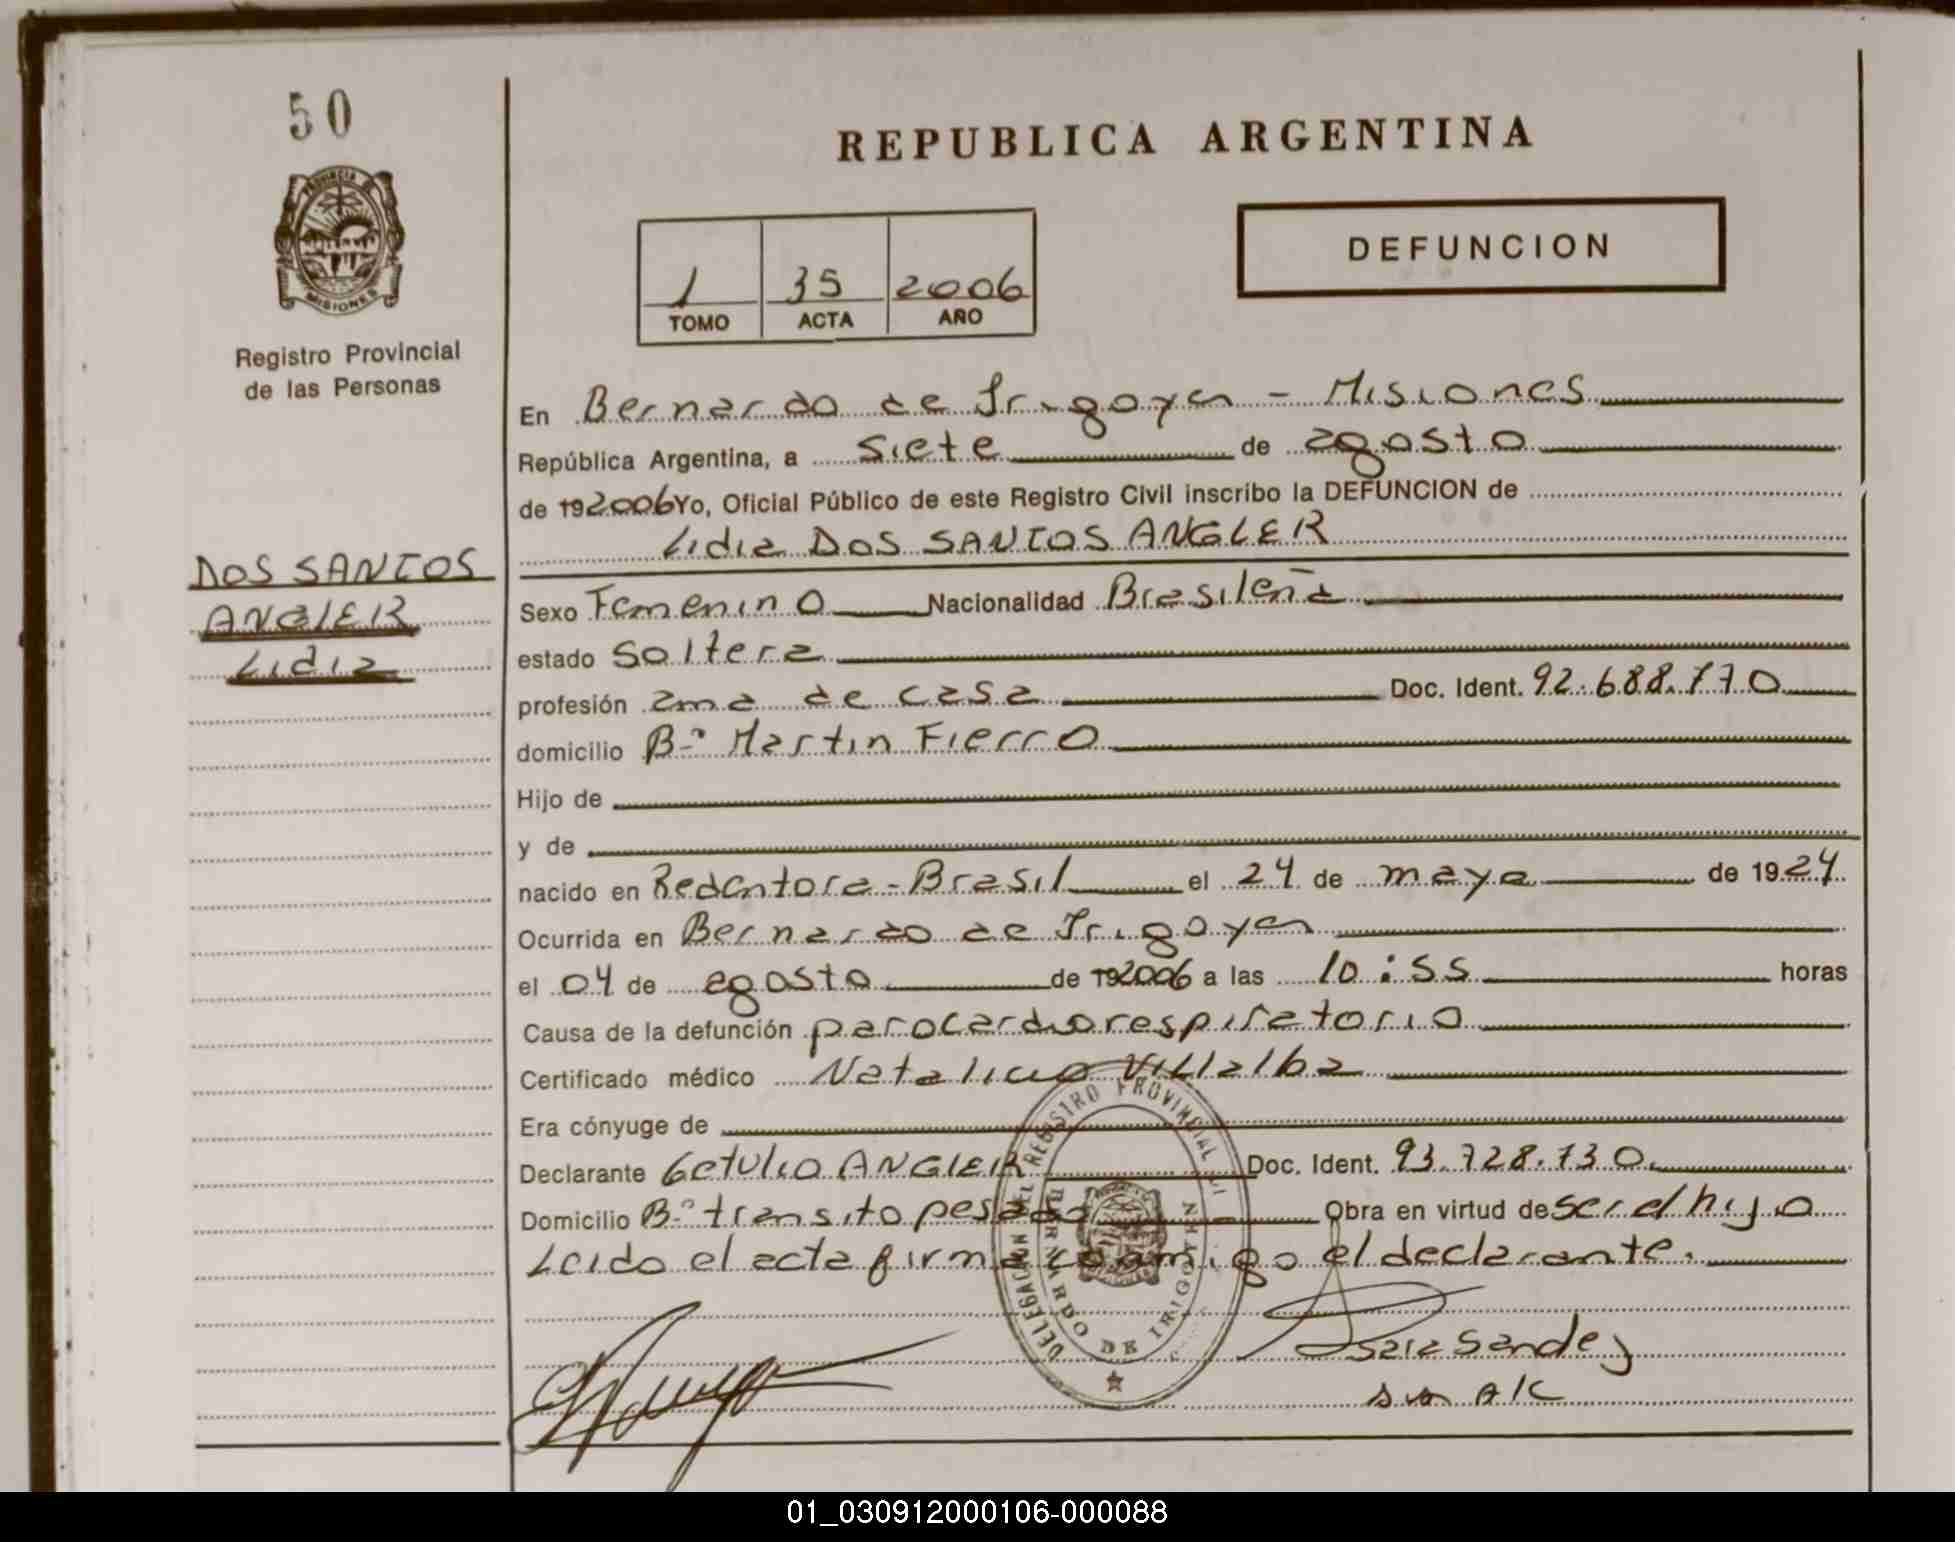 50
PROVINCIA DE
MISIONES
Registro Provincial
de las Personas
DOS SANTOS
ANGLER
Lidia
REPUBLICA ARGENTINA
DEFUNCION
1 35 2006
TOMO ACTA AÑO
En Bernardo de Irigoyen - Misiones
República Argentina, a siete de agosto
de 192006 Yo, Oficial Público de este Registro Civil inscribo la DEFUNCION de
Lidia DOS SANTOS ANGLER
Sexo Femenino Nacionalidad Brasileña
estado Soltera
profesión ama de casa Doc. Ident. 92.688.770
domicilio B.º Martin Fierro
Hijo de
y de
nacido en Redentora - Brasil el 24 de mayo de 1924
Ocurrida en Bernardo de Irigoyen
el 04 de agosto de 192006 a las 10:55 horas
Causa de la defunción parocardiorespiratorio
Certificado médico Natalicio Villalba
Era cónyuge de
Declarante Getulio ANGLER Doc. Ident. 93.728.730
Domicilio B.º transito pesado Obra en virtud de ser el hijo
Leido el acta firma conmigo el declarante.
DELEGACION DEL REGISTRO PROVINCIAL
BERNARDO DE IRIGOYEN
01_030912000106-000088